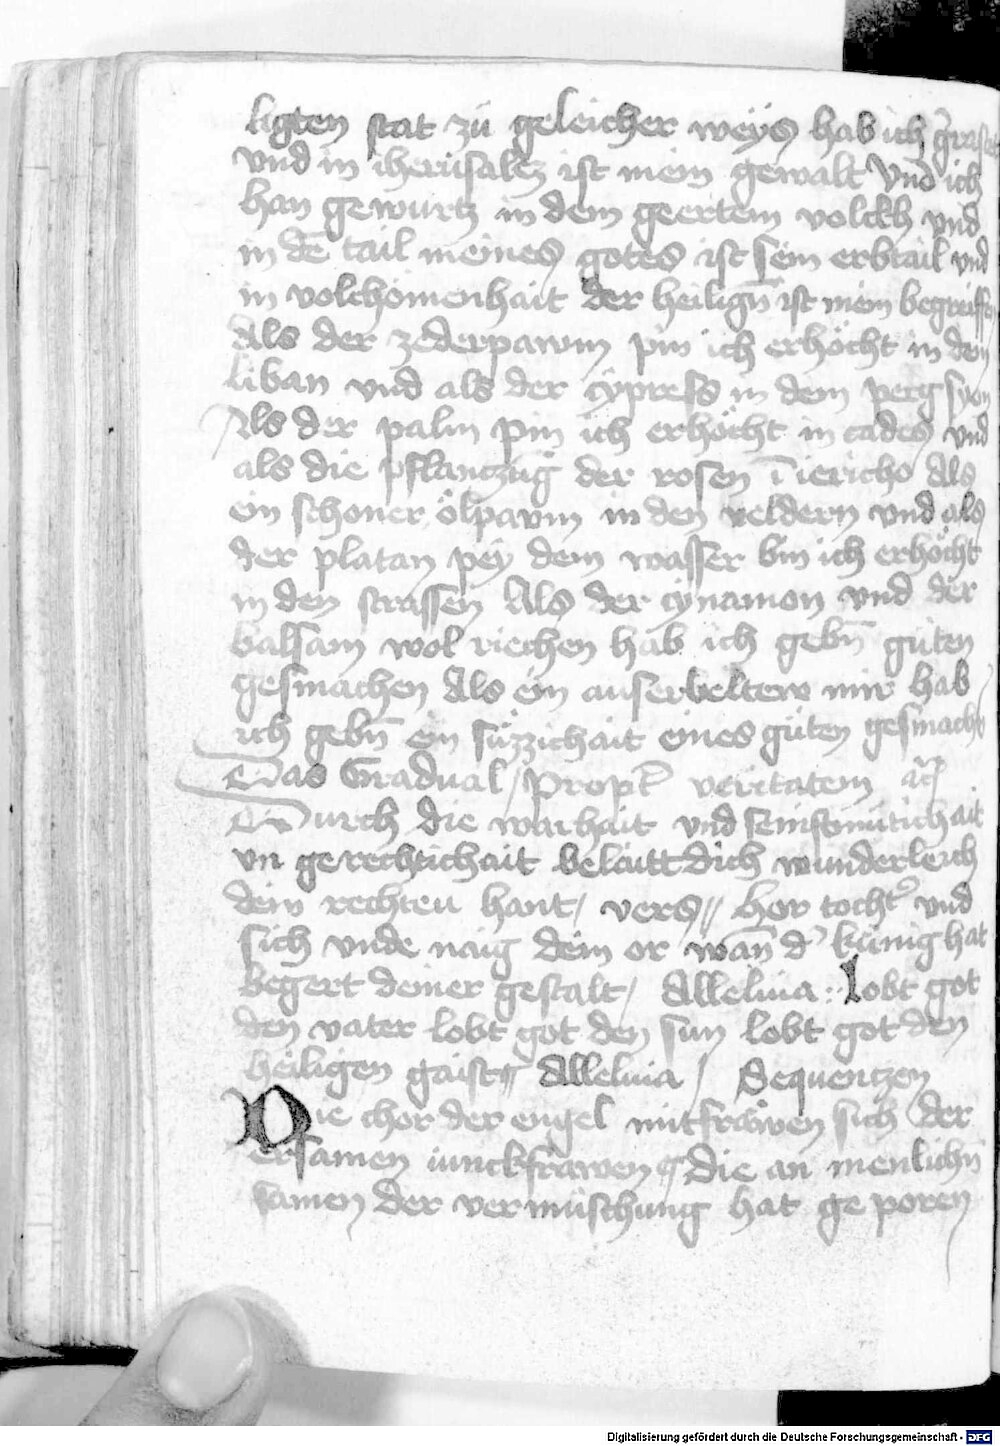 ligten stat zu geleicher weys hab ich gerast
vnd in iherusalem ist mein gewalt vnd ich
han gewurtz in dem geertem volckh vnd
in dē tail meines gotes ist sein erbtail vnd
in volchomenhait der heilign̄ ist mein begreiffen
Als der zederpawm pin ich erhöcht in dem
liban vnd als der cypress in dem perg syon
Als der palm pin ich erhöcht in cades vnd
als die pflantzūg der rosen ī iericho Als
ein schoner ölpawm in den veldern vnd als
der platan pey dem wasser bin ich erhöcht
in den strassen Als der cynamon vnd der
balsam wol riechen hab ich gebn̄ guten
gesmachen Als ein auserwelter mir hab
ich gebn̄ ein süzzichait eines guten gesmachs
Das Gradual / Propt̄ veritatem
Durch die warhait vnd senftmütichait
vn gerechtichait belaitt dich wunderleich
dein rechten hant / vers // Hor tocht̓ vnd
sich vnde naig dein or wan̄ d̓ künig hat
begert deiner gestalt / Alleluia : Lobt got
den vater lobt got den sun lobt got den
heiligen gaist Alleluia / Sequentzen
Die chor der engel mitfräwen sich der
ersamen iunckfrawen die an menlichn̄
samen der vermüschung hat ge poren
Digitalisierung gefördert durch die Deutsche Forschungsgemeinschaft - DFG